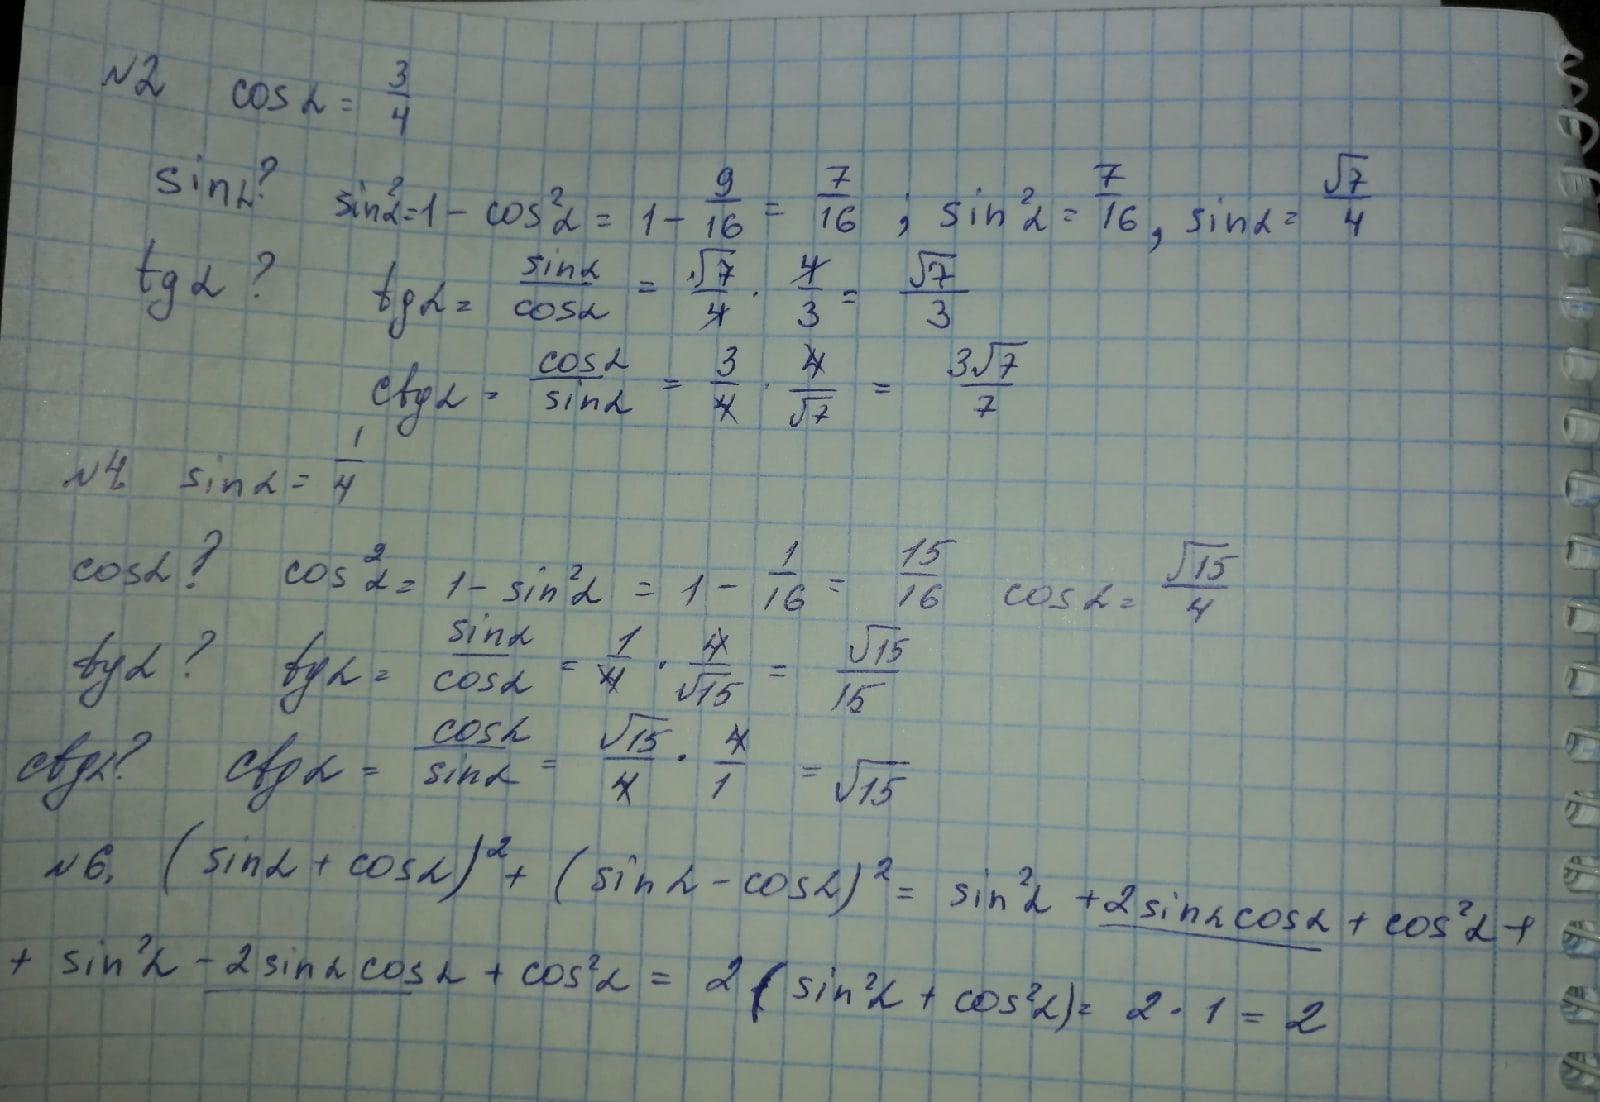 №2 cosα = 3/4
sinα? sin²α = 1 - cos²α = 1 - 9/16 = 7/16 ; sin²α = 7/16, sinα = √7/4
tgα? tgα = sinα/cosα = √7/4 · 4/3 = √7/3
ctgα = cosα/sinα = 3/4 · 4/√7 = 3√7/7
№4 sinα = 1/4
cosα? cos²α = 1 - sin²α = 1 - 1/16 = 15/16 cosα = √15/4
tgα? tgα = sinα/cosα = 1/4 · 4/√15 = √15/15
ctgα? ctgα = cosα/sinα = √15/4 · 4/1 = √15
№6. (sinα + cosα)² + (sinα - cosα)² = sin²α + 2sinαcosα + cos²α +
+ sin²α - 2sinαcosα + cos²α = 2(sin²α + cos²α) = 2 · 1 = 2